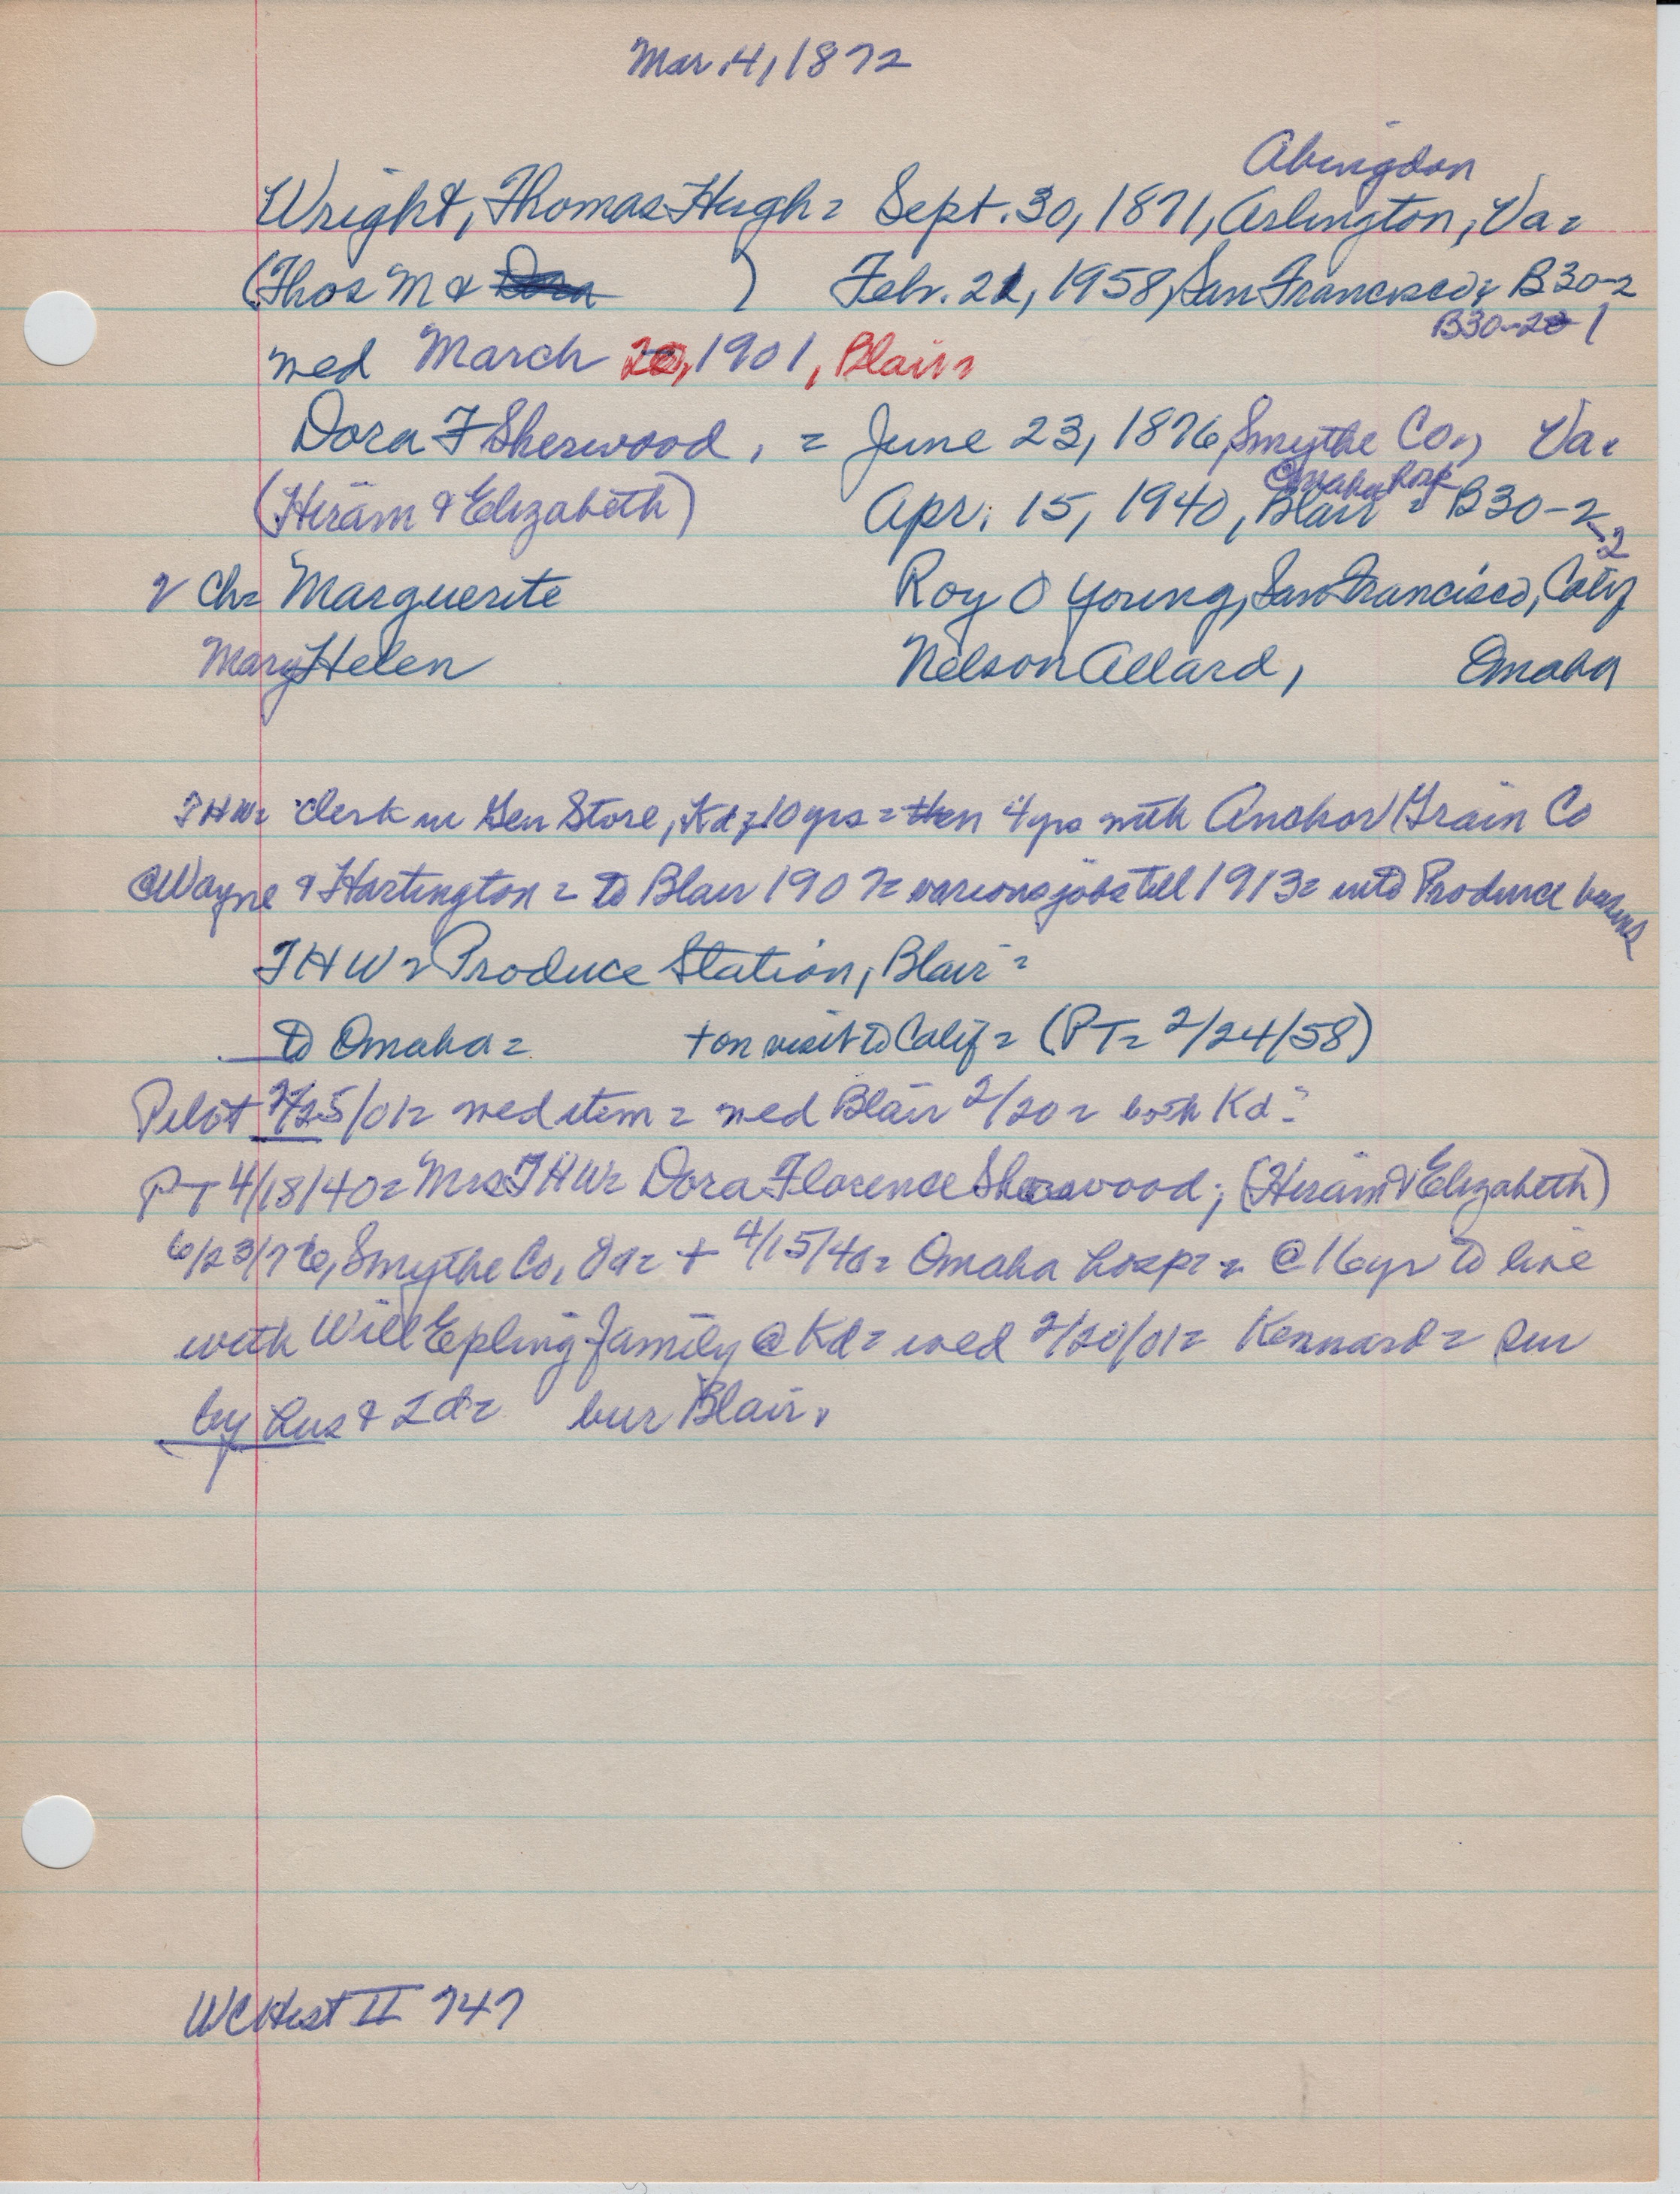 Mar. 4, 1872
Abingdon
Wright, Thomas Hugh = Sept. 30, 1871, Arlington, Va =
(Thos M & Dora ) Feb. 21, 1958, San Francisco; B30-2
B30-2 1
wed March 20, 1901, Blair =
Dora F Sherwood, = June 23, 1876, Smythe Co, Va.
Omaha hosp
(Hiram & Elizabeth) Apr. 15, 1940, Blair = B30-2
-2
2 Ch = Marguerite Roy O Young, San Francisco, Calif
Mary Helen Nelson Allard, Omaha
THW = clerk in Gen Store, Kd, 10 yrs = then 4 yrs with Anchor Grain Co
@ Wayne & Hartington = to Blair 1907 = various jobs till 1913 = into Produce business
THW = Produce Station, Blair =
to Omaha = + on visit to Calif = (PT = 2/24/58)
Pilot 2/25/01 = wed item = wed Blair 2/20 = both Kd =
PT 4/18/40 = Mrs THW = Dora Florence Sherwood; (Hiram & Elizabeth)
6/23/76, Smythe Co, Va = + 4/15/40 = Omaha hosp = @ 16 yr to live
with Will Epling family @ Kd = wed 2/20/01 = Kennard = sur
by hus & 2 d = bur Blair.
WC Hist II 747